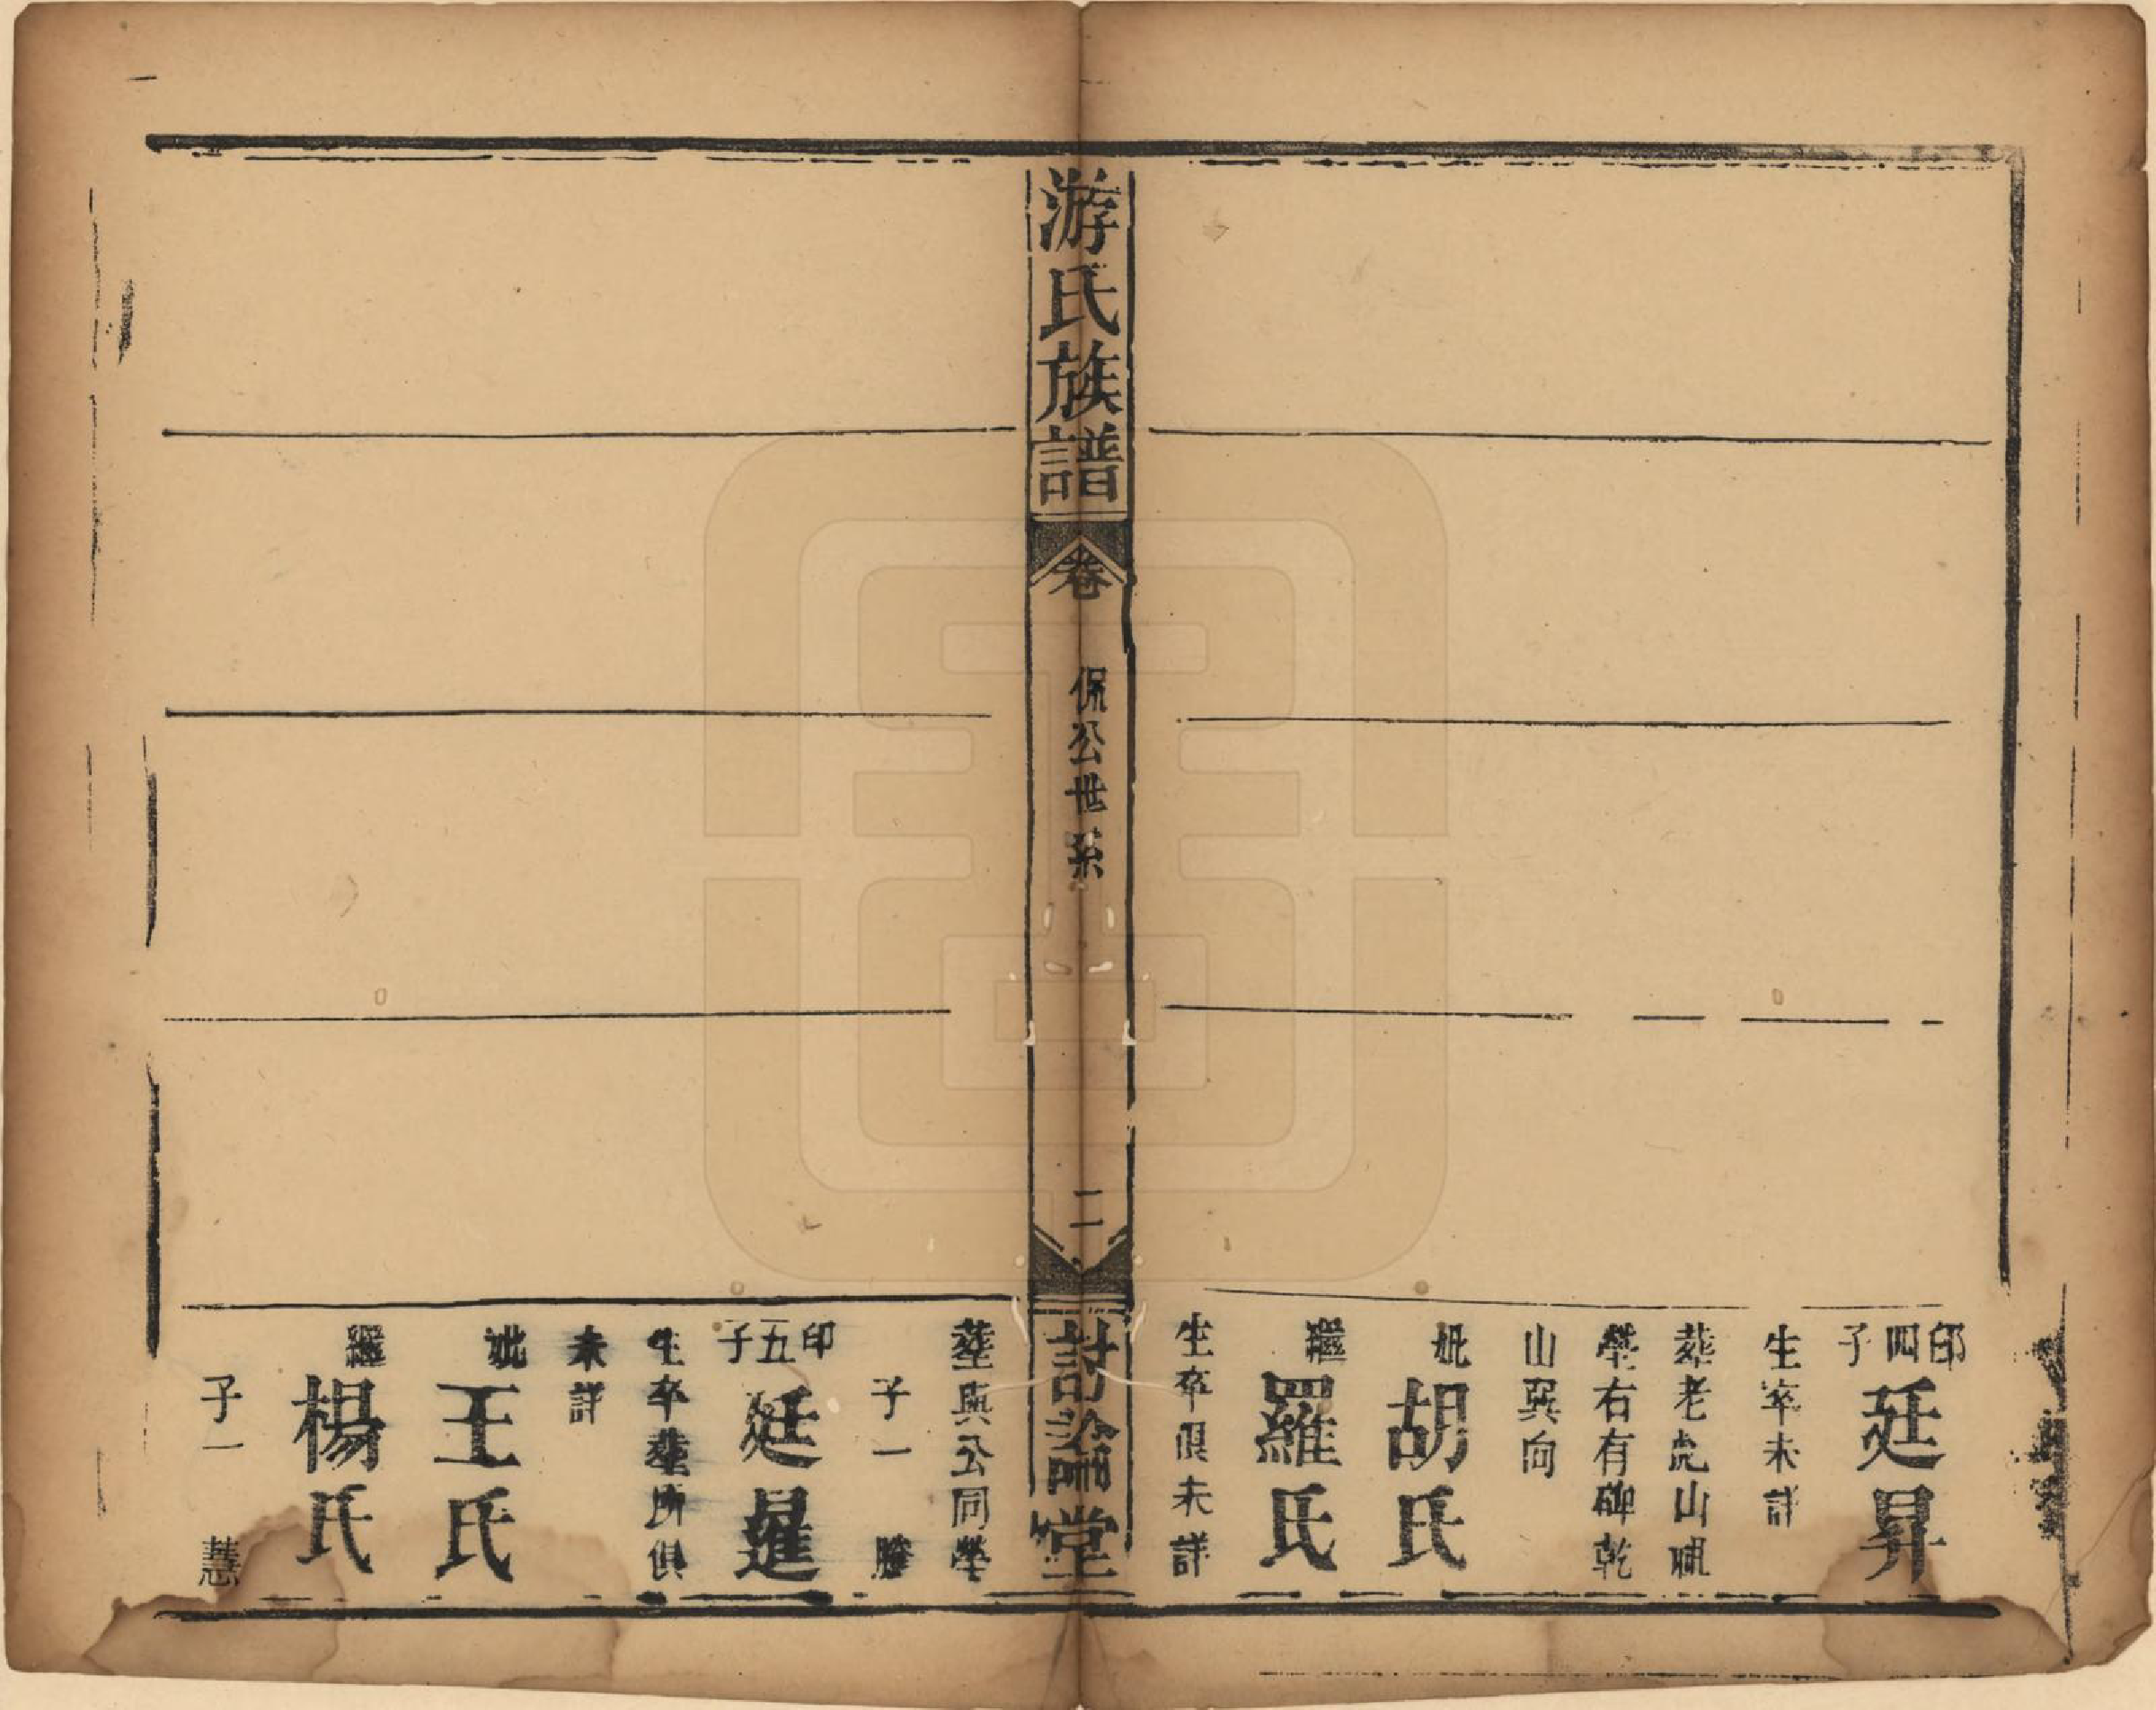 印四子
廷昇
生卒未詳
葬老虎山
塋右有碑乾
山巽向
妣
胡氏
繼
羅氏
生卒俱未詳
游氏族譜
卷
侃公世系
二
討論堂
葬與公同塋
子一
勝
印五子
廷暹
生卒葬所俱
未詳
妣
王氏
繼
楊氏
子一
慧